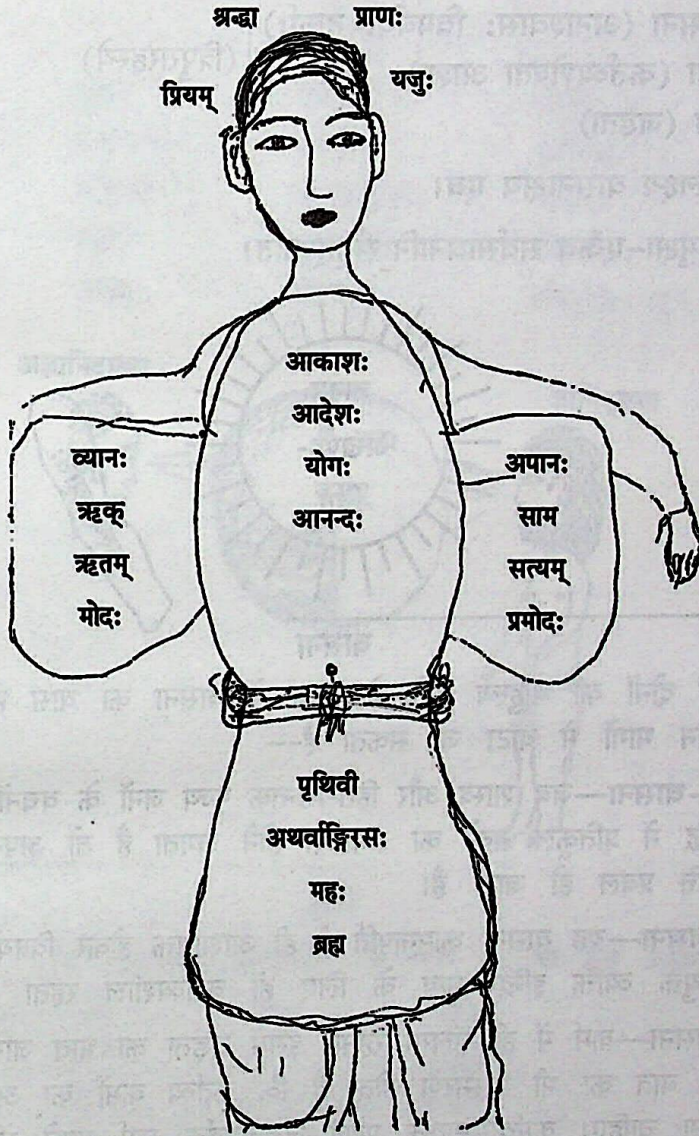 श्रद्धा प्राणः
प्रियम् यजुः
आकाशः
आदेशः
योगः
आनन्दः
व्यानः
ऋक्
ऋतम्
मोदः
अपानः
साम
सत्यम्
प्रमोदः
पृथिवी
अथर्वाङ्गिरसः
महः
ब्रह्म